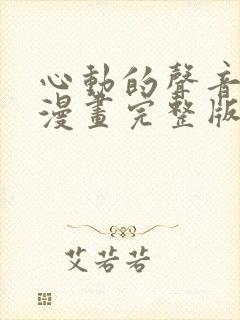 心動的聲音
漫畫完整版
艾若若